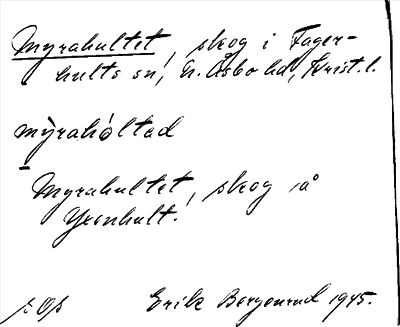 Myrahultet, skog i Fager-
hults sn, N. Åsbo hd, Krist. l.
mỳrahóltad
Myrahultet, skog å
Yxenhult.
Erik Bergenrud 1945.